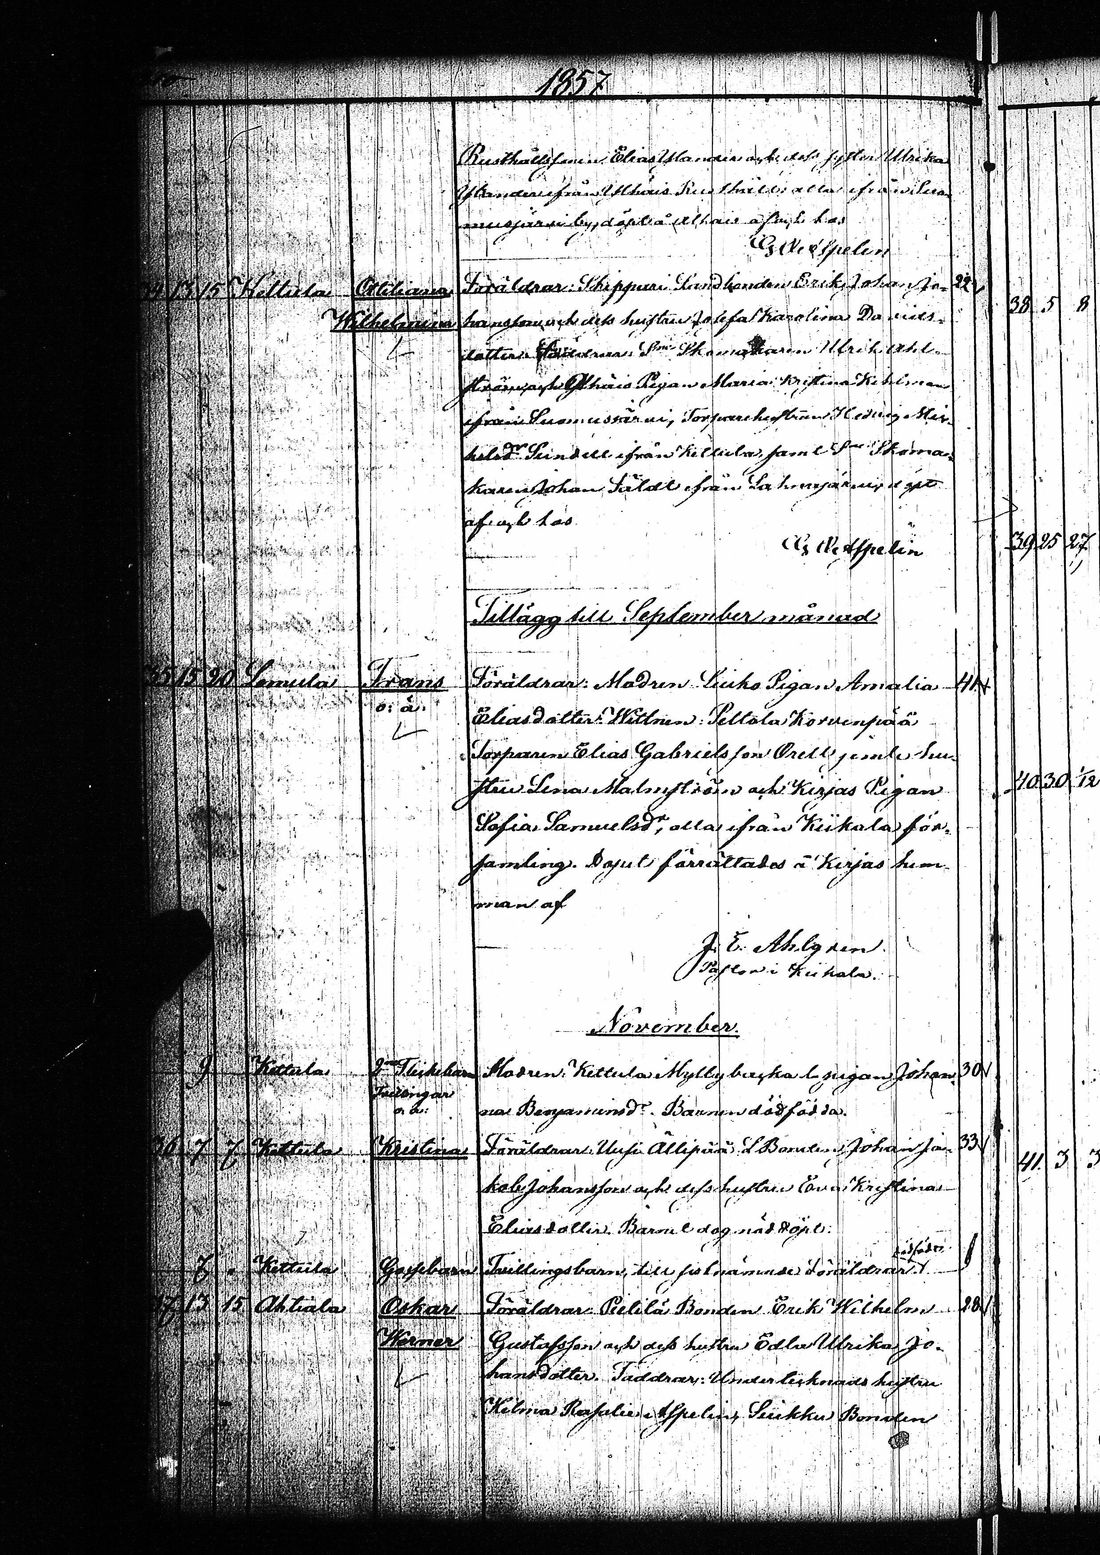 1857
Rusthållssonen Elias Ylander och dess syster Ulrika
Ylander ifrån Ylhäis Rusthåll, alla ifrån Suo-
musjärvi by, döpt å Ylhäis af och hos
Aspelin
34 13 15 Kettula Ottiliana Föräldrar: Skippari Landbonden Erik Johan Jo- 22
Wilhelmina hansson och dess hustru Josefa Karolina Davids-
dotter. Faddrar: Skomakaren Ulrik Ahl-
ström och Ylhäis Pigan Maria Kristina Kihlman
ifrån Suomusjärvi, Torparehustrun Hedvig Mik-
helsdr Sundell ifrån Kettula samt Skoma-
karen Johan Fäldt ifrån Lahnajärvi, döpt
af och hos
Aspelin
Tillägg till September månad
35 15 20 Lemula Frans Föräldrar: Modren Pigan Amalia 41
o: ä: Eliasdotter. Wittnen: Peltola Korvenpää
Torparen Elias Gabrielsson Orell jemte hu-
stru Lena Malmström och Kirjas Pigan
Sofia Samuelsdr, alla ifrån Kiikala för-
samling. Dopet förrättades å Kirjas hem-
man af
J. E. Ahlgren
Pastor i Kiikala.
November.
9 Kettula 2ne Flickebarn Modren: Kettula Myllybacka l. pigan Johan- 30
Tvillingar na Benjaminsdr. Barnen dödfödda.
o. ä:
36 7 7 Kettula Kristina Föräldrar: Uusi Ällipää L. Bonden Johan Ja- 33
kob Johansson och dess hustru Eva Kristina
Eliasdotter. Barnet dog nöddöpt.
7 " Kettula Gossebarn Tvillingsbarn, till sistnämnde Föräldrar dödfödt
37 13 15 Ahtiala Oskar Föräldrar: Peltila Bonden Erik Wilhelm 28
Werner Gustafsson och dess hustru Edla Ulrika Jo-
hansdotter. Faddrar: Undertecknads hustru
Hilma Rosalie Aspelin, Siukku Bonden
38 5 8
39 25 27
40 30 1/12
41 3 3